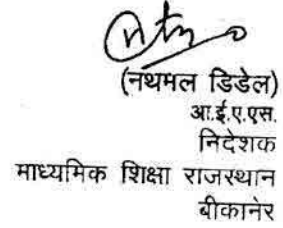 (नथमल डिडेल)
आ.ई.ए.एस.
निदेशक
माध्यमिक शिक्षा राजस्थान
बीकानेर